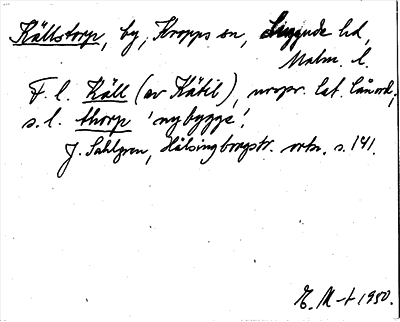 Källstorp, by, Kropps sn, Luggude hd,
Malm. l.
F. l. Käll (av Kätil), urspr. lat. lånord,
s. l. thorp 'nybygge'.
J. Sahlgren, Hälsingborgstr. ortn. s. 141.
E. M-t 1950.